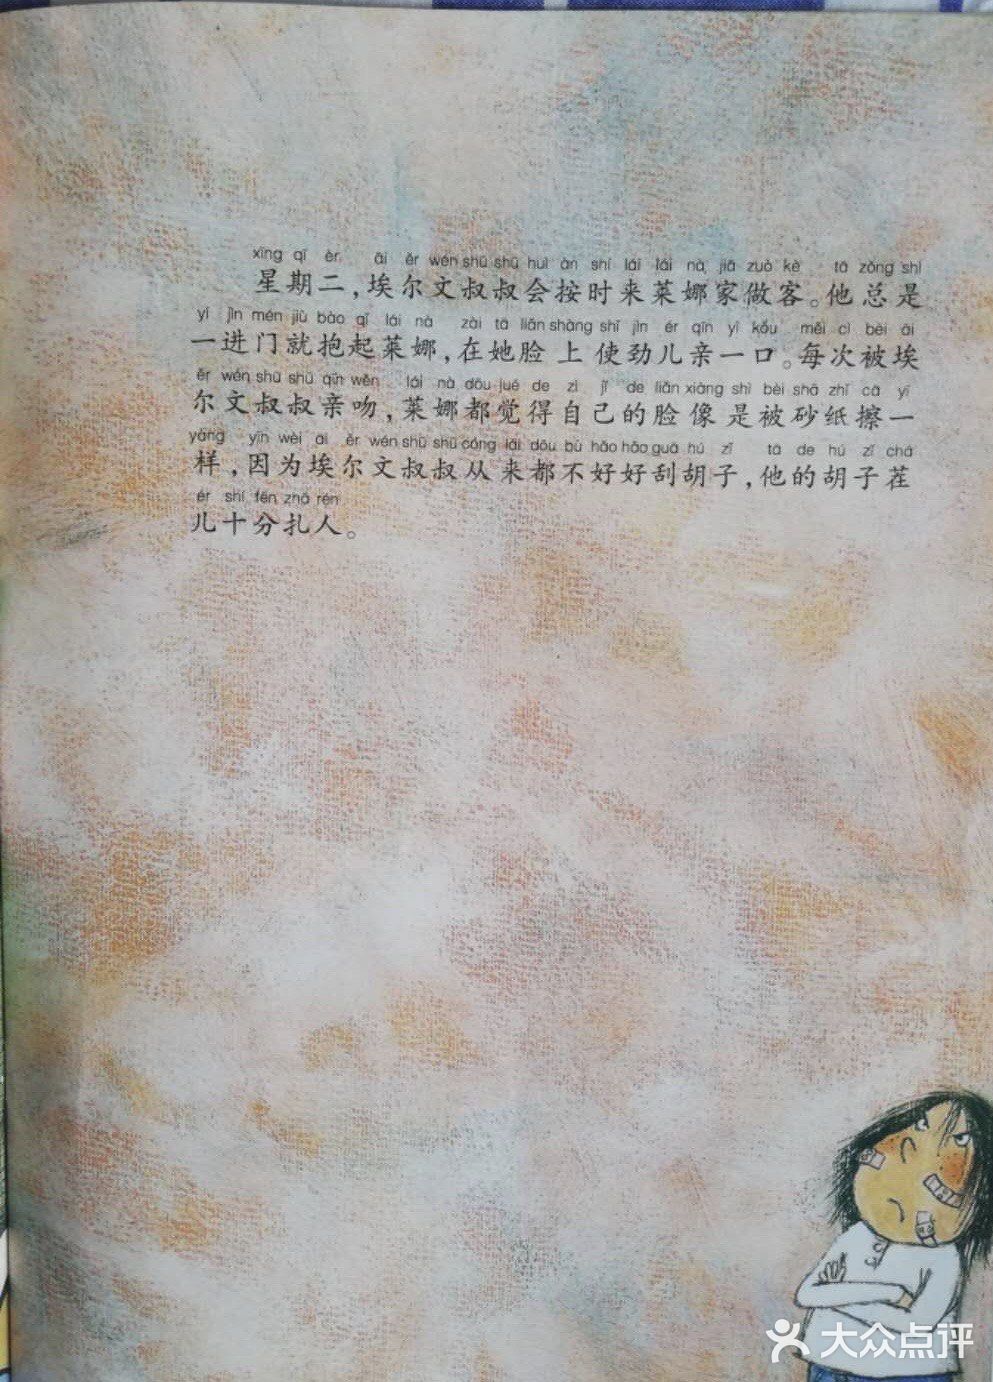 xīng qī èr　āi ěr wén shū shū huì àn shí lái lái nà jiā zuò kè　tā zǒng shì
星期二，埃尔文叔叔会按时来莱娜家做客。他总是
yí jìn mén jiù bào qǐ lái nà　zài tā liǎn shàng shǐ jìn ér qīn yì kǒu　měi cì bèi āi
一进门就抱起莱娜，在她脸上使劲儿亲一口。每次被埃
ěr wén shū shū qīn wěn　lái nà dōu jué de zì jǐ de liǎn xiàng shì bèi shā zhǐ cā yí
尔文叔叔亲吻，莱娜都觉得自己的脸像是被砂纸擦一
yàng　yīn wèi āi ěr wén shū shū cóng lái dōu bù hǎo hǎo guā hú zi　tā de hú zi chá
样，因为埃尔文叔叔从来都不好好刮胡子，他的胡子茬
ér shí fēn zhā rén
儿十分扎人。
大众点评